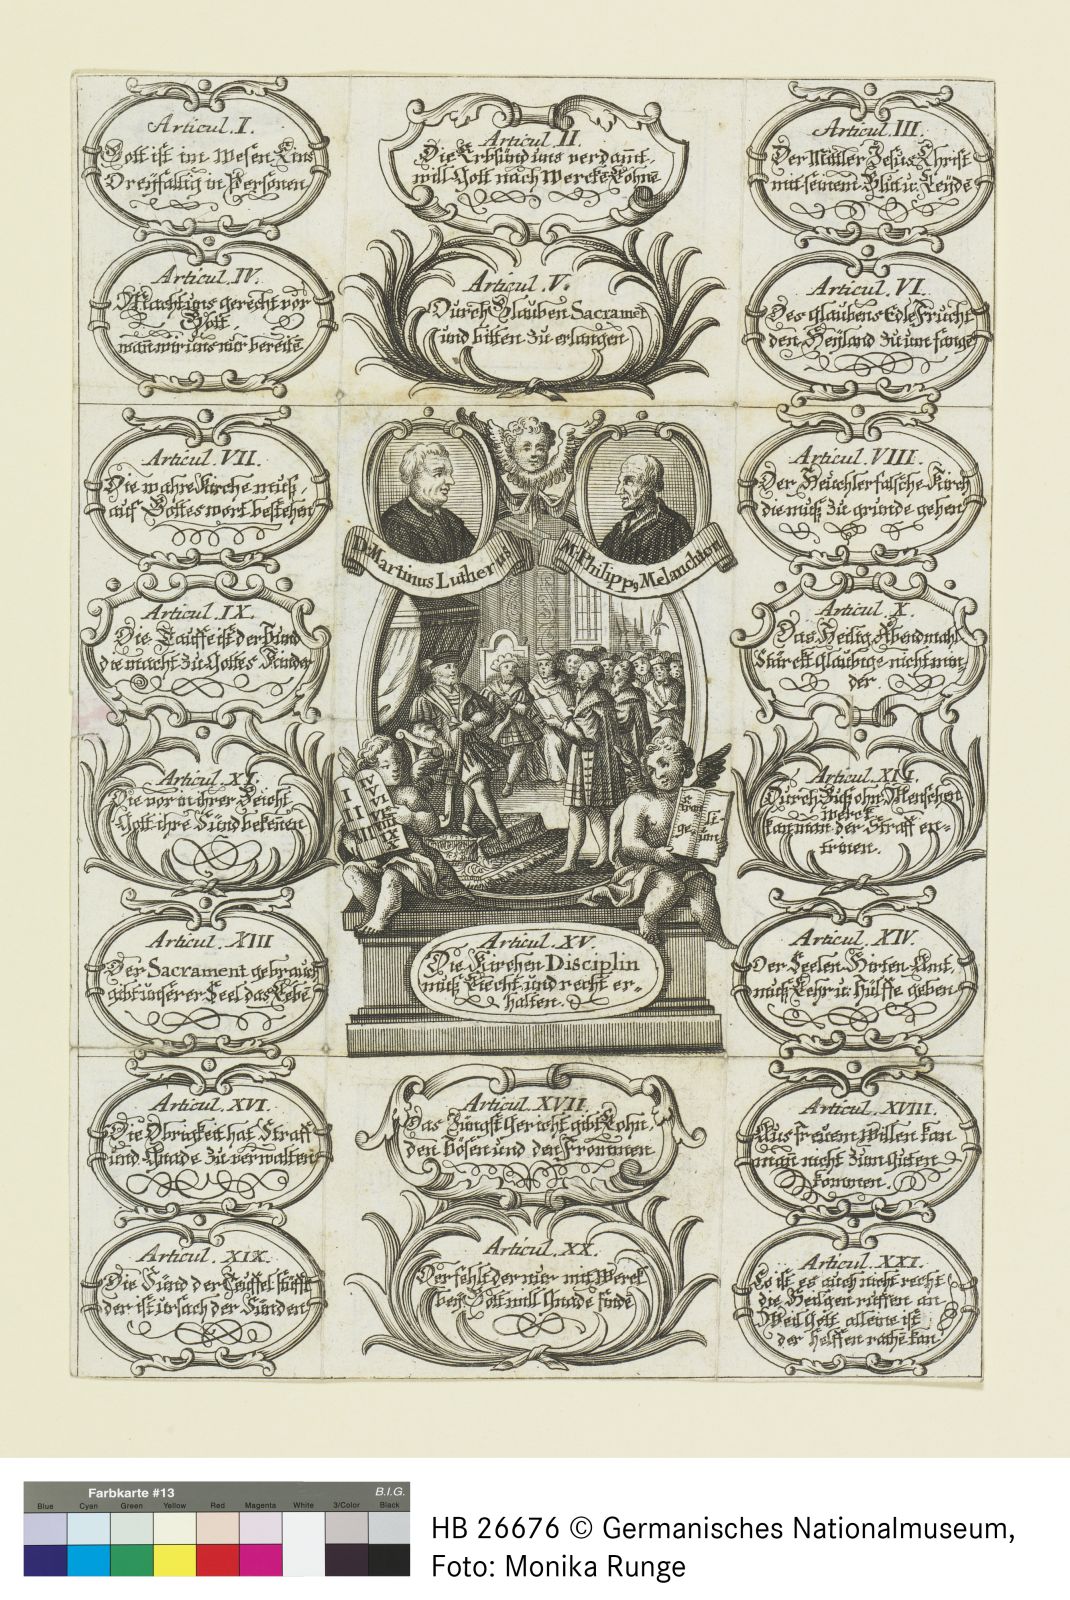 Articul. I.
Gott ist im Wesen Eins
Dreyfaltig in Persohnen
Articul. II.
Die Erbsünd uns verdam̄t,
will Gott nach Wercke Lohne
Articul. III.
Der Mitler Jesus Christ
mit seinem Blut u: Leyde
Articul. IV.
Macht uns gerecht vor
Gott.
wan̄ wir uns nur bereite
Articul. V.
Durch Glauben Sacramet
und bitten zu erlangen
Articul. VI.
Des glaubens Edle Frucht
den Heyland zu um fange
Articul. VII.
Die wahre Kirche muß,
auf Gottes wort bestehen
Articul. VIII.
Der Heuchler falsche Kirch
die muß zu grunde gehen
D. Martinus Lutherus
M. Philipp9 Melanchton
Articul. IX.
Die Tauffe ist der bund
die macht zu Gottes Kinder
Articul. X.
Das Heilig Abendmahl
Stärckt glaubige nicht min
der.
Articul. XI.
Die vor in ihrer Beicht
Gott ihre Sünd bekenen
Articul. XII.
Durch Buß ohne Menschen
werck
kan man der Straff en-
trinen.
I
II
V
VI
VII
X
Articul. XIII
Der Sacrament gebrauch
gibt unserer Seel das Lebe
Articul. XIV.
Der Seelen Hirten Amt,
muß Lehr u: Hülffe geben
Articul. XV.
Die Kirchen Disciplin
muß Kirche und recht er-
halten.
Articul. XVI.
Die Obrigkeit hat Straff
und Gnade zu verwalten
Articul. XVII.
Das Jüngst Gericht gibt Lohn,
den Bösen und den Frommen
Articul. XVIII.
Aus freuem Willen kan
man nicht zum Guten
kommen.
Articul. XIX.
Die Sünd der Teuffel stifft
der ist ursach der Sünden
Articul. XX.
Der fehlt der nur mit Werck
beÿ Gott will Gnade finde
Articul. XXI.
So ist es auch nicht recht
die Heiligen ruffen an
Weil Gott alleine ist
der helffen rathe kan
Farbkarte #13 B.I.G.
Blue Cyan Green Yellow Red Magenta White 3/Color Black
HB 26676 © Germanisches Nationalmuseum,
Foto: Monika Runge